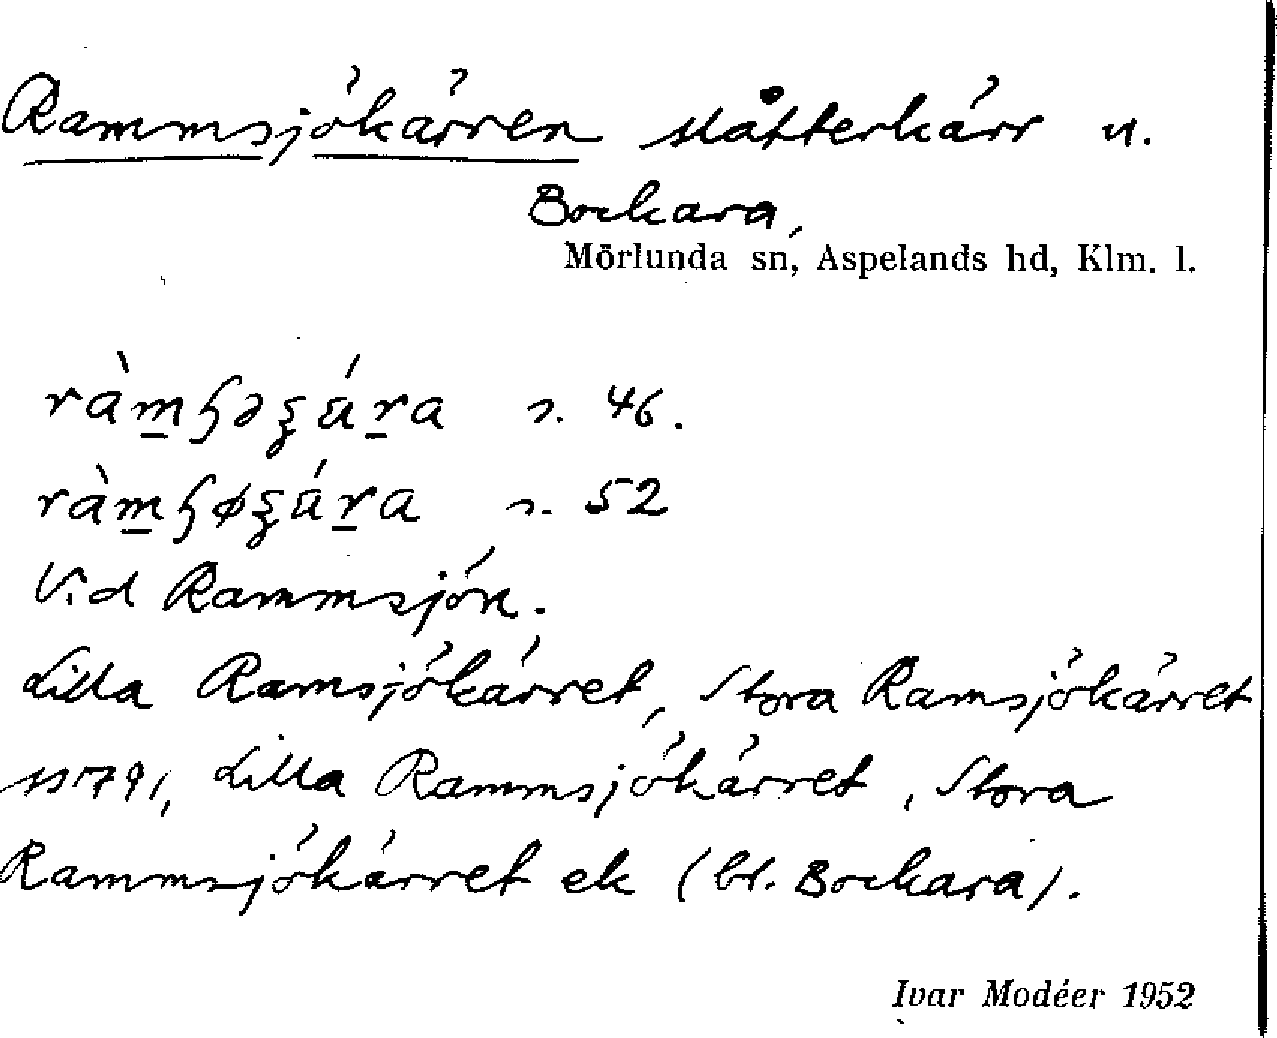 Rammsjökärren slåtterkärr u.
Bockara,
Mörlunda sn, Aspelands hd, Klm. l.
s. 46.
s. 52
Vid Rammsjön.
Lilla Ramsjökärret, Stora Ramsjökärret
1791, Lilla Rammsjökärret, Stora
Rammsjökärret ek (bl. Bockara).
Ivar Modéer 1952